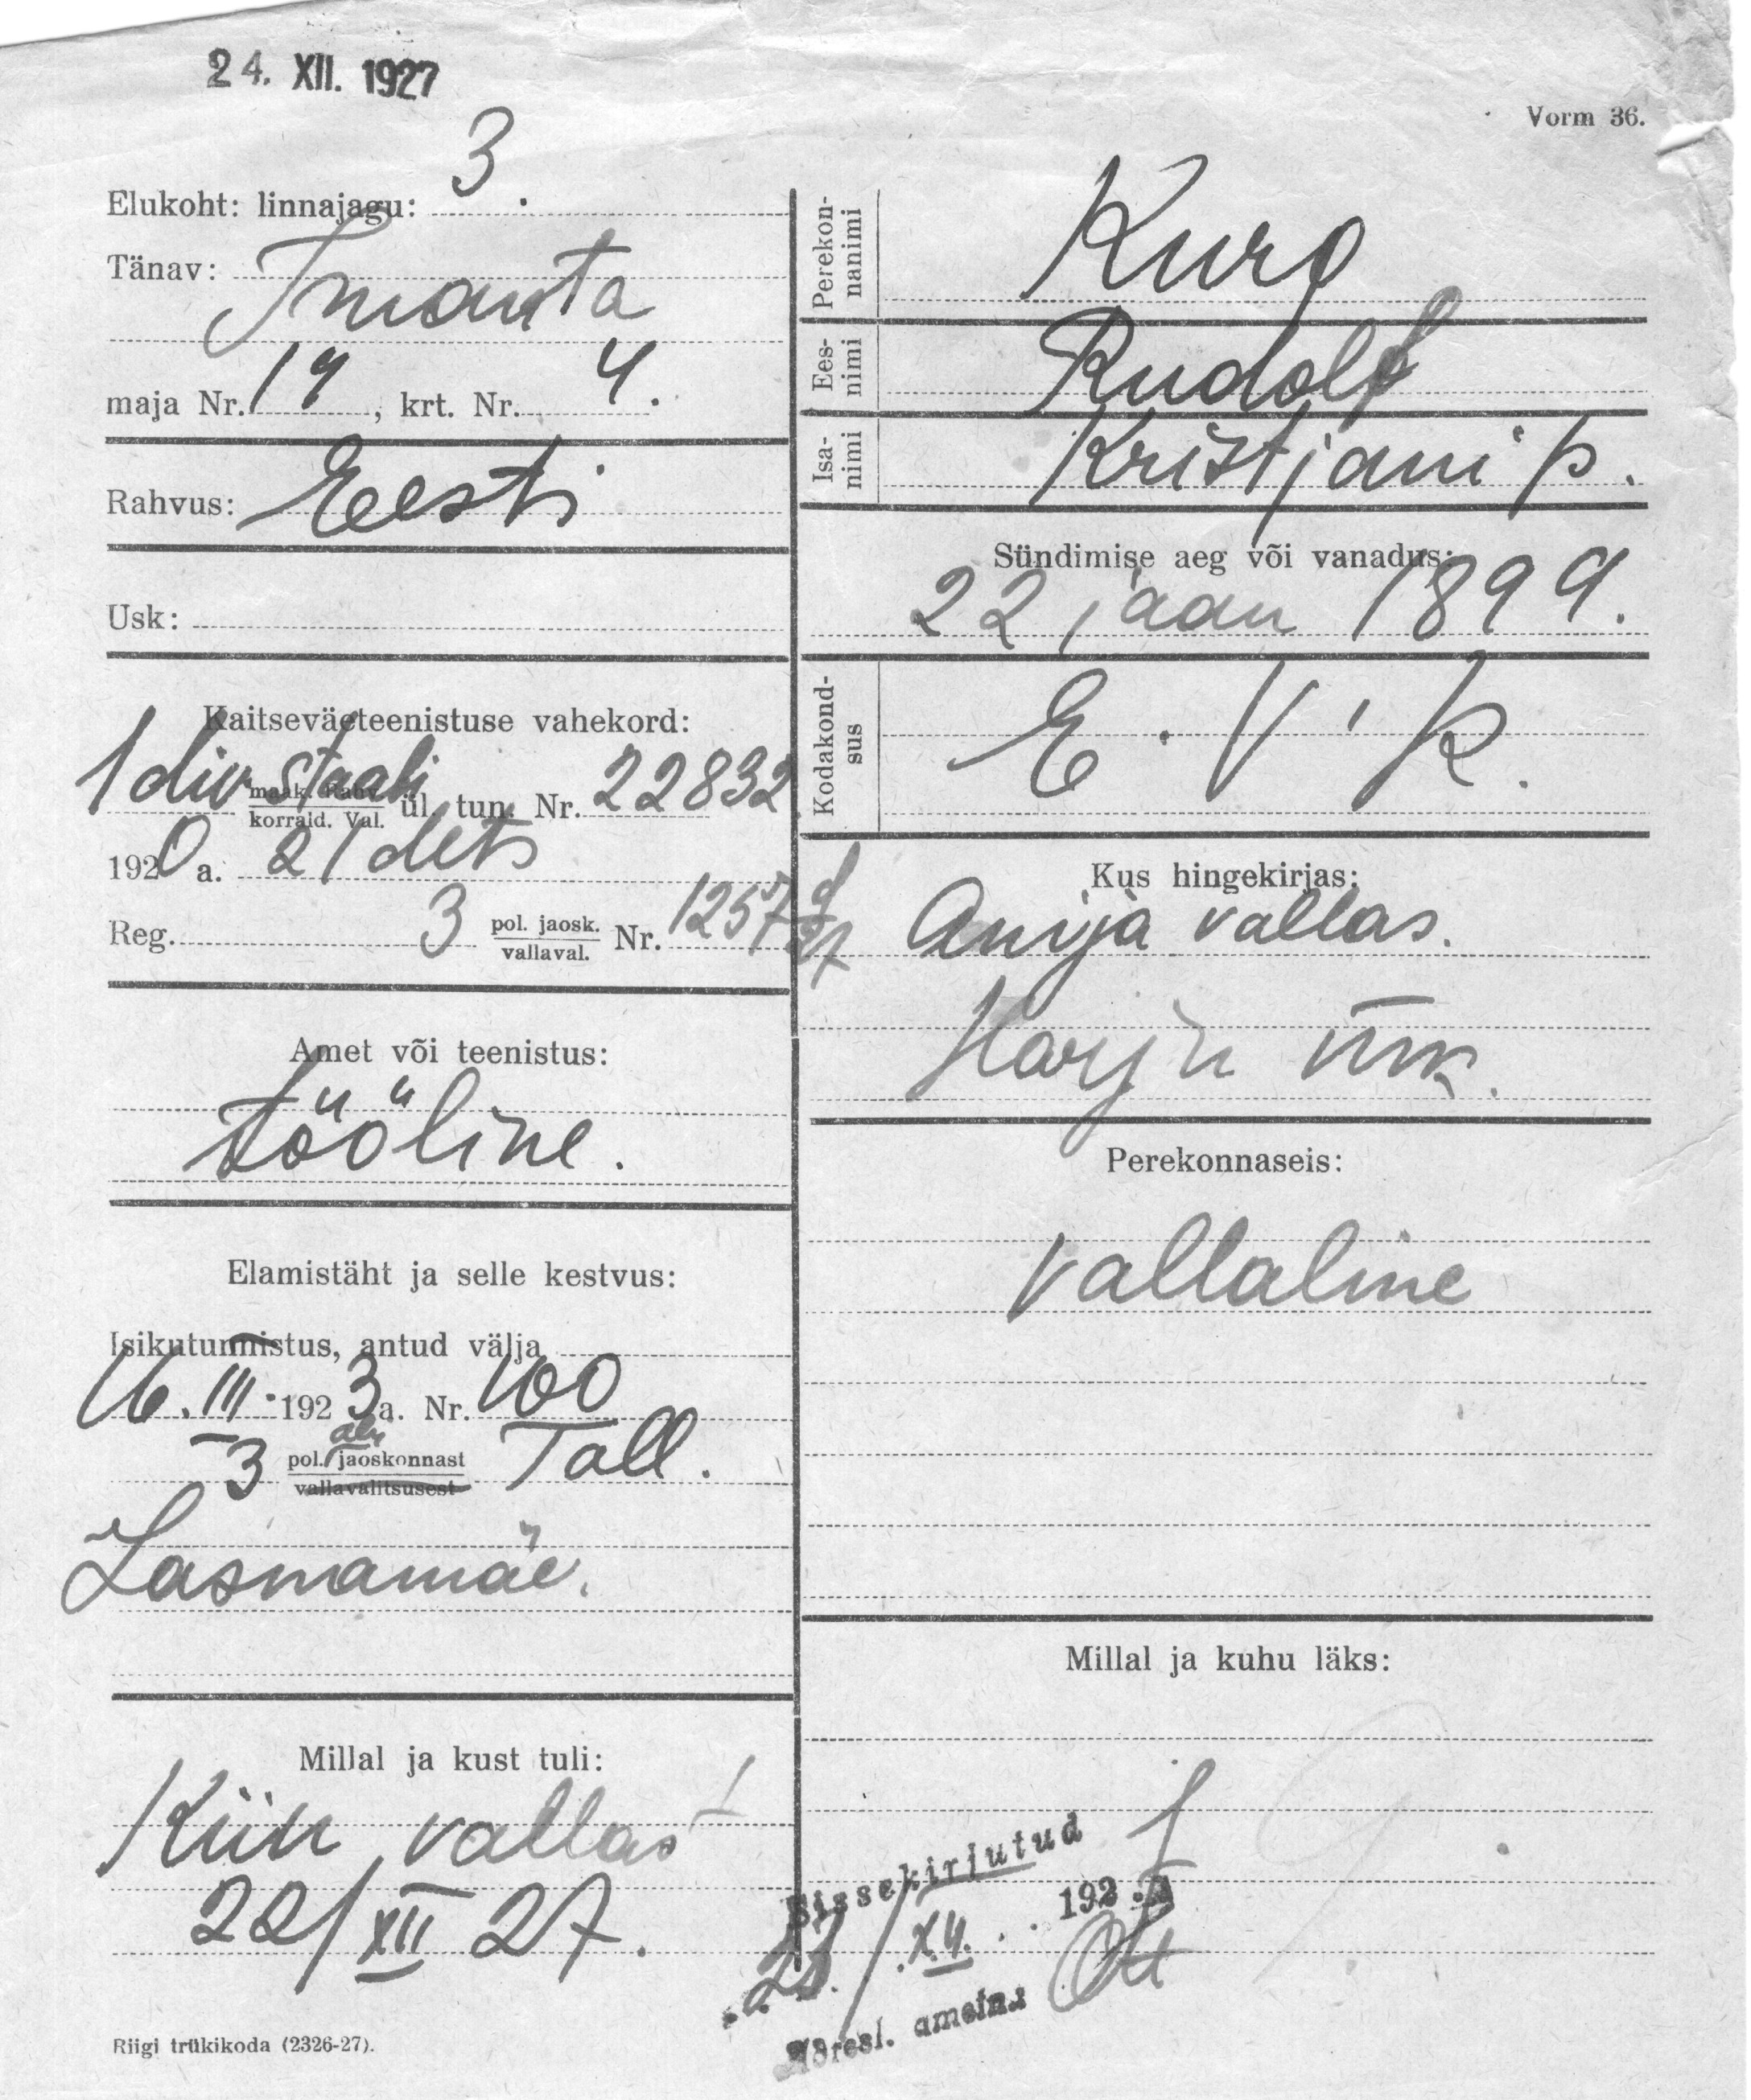 24. XII. 1927
Vorm 36.
Elukoht: linnajagu: 3.
Tänav: Imanta
maja Nr. 19, krt. Nr. 4.
Rahvus: Eesti
Usk:
Kaitseväeteenistuse vahekord:
1 div staabi
maak. Rahv.
korrald. Val. ül. tun. Nr. 22832
1920 a. 21 dets
Reg. 3 pol. jaosk. Nr. 1257
vallaval.
Amet või teenistus:
tööline.
Elamistäht ja selle kestvus:
Isikutunnistus, antud välja
16. III. 1923 a. Nr. 100
3 pol. jaoskonnast Tall.
vallavalitsusest
Lasnamäe.
Millal ja kust tuli:
Kiiu vallast
22/XII 27.
Riigi trükikoda (2326-27).
Perekon-
nanimi
Kurg
Ees-
nimi
Rudolf
Isa-
nimi
Kristjani p.
Sündimise aeg või vanadus:
22 jaan 1899.
Kodakond-
sus
E. V. k.
Kus hingekirjas:
Anija vallas.
Harju mk.
Perekonnaseis:
Vallaline
Millal ja kuhu läks:
Sissekirjutud
/ XII. 192
Adresl. ametn.: